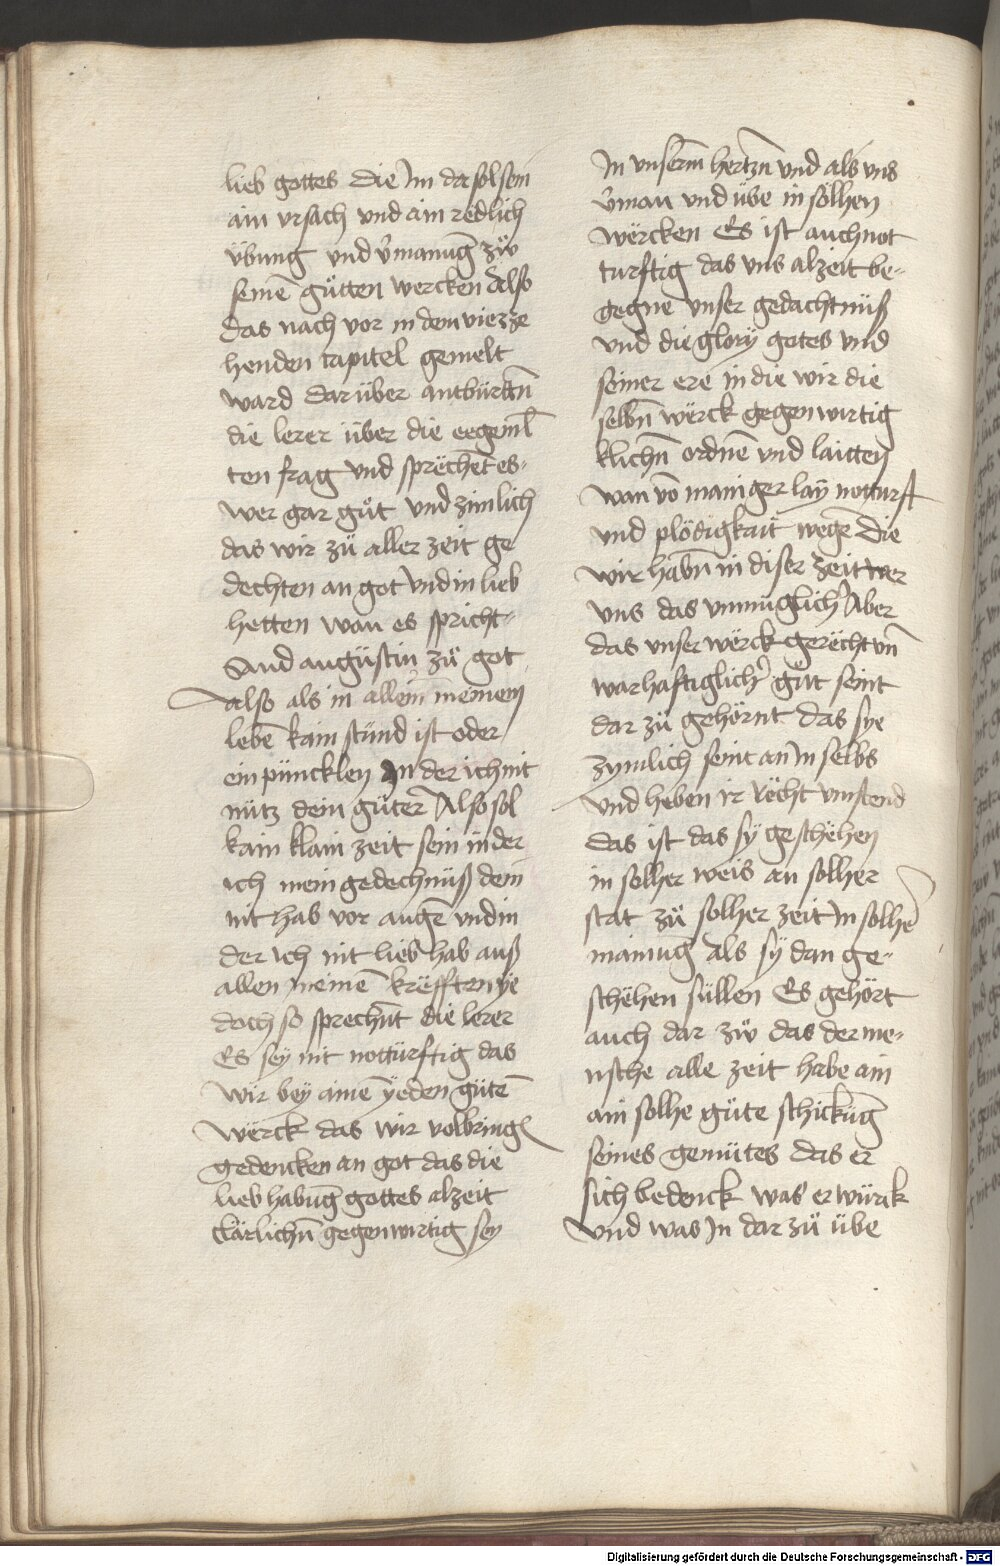 lieb gottes die Im da sol sein
ain vrsach vnd ain redlich
vbung vnd v̄manūg zů
seinē gůtten wercken Also
das nach vor in dem vierze
henden capitel gemelt
ward dar über antbürtn̄
die lerer über die eegeml̄
ten frag vnd sprëchēt es-
wer gar gůt vnd zimlich
das wir zů aller zeit ge
dechten an got vnd in lieb
hetten wan es spricht-
Sand augüstin zů got
Also als in allem meinem
lebē kain stünd ist oder
ein püncklen In der ich nit
nütz dein güter Also sol
kain klain zeit sein in der
ich mein gedechnüß dein
nit hab vor augē vnd in
der ich nit lieb hab auß
allen meinē krëfften ye
doch so sprechn̄t die lerer
Es sey nit nottürftig das
wir bey ainē yeden gütē
wërck das wir volbringē
gedencken an got das die
lieb habūg gottes alzeit
klärlichn̄ gegenwirtig sey
In vnserm̄ hertzn̄ vnd als vns
v̄man vnd übe in sölhen
wërcken Es ist auch not
turftig das vns alzeit be-
gegne vnser gedachtnüß
vnd die glory gotes vnd
seiner ere in die wir die
selbn̄ wërck gegenwirtig
klichn̄ ordnē vnd laitten
wan vō maniger lay notturft
vnd plödigkait wegē die
wir habn̄ in diser zeit wer
vns das vnmüglich Aber
das vnser wërck gerëcht vn̄
warhaftiglich gůt seint
dar zů gehörnt das sye
zymlich seint an In selbs
vnd heben ir rëcht vmstend
das ist das sy geschëhen
in solher weis an solher
stat zů solher zeit In solhē
mainūg als sy dan ge-
schëhen süllen Es gehört
auch dar zů das der me-
nsche alle zeit habe ain
ain solhe güte schickūg
seines gemütes das er
sich bedenck was er würck
vnd was In dar zů übe
Digitalisierung gefördert durch die Deutsche Forschungsgemeinschaft - DFG